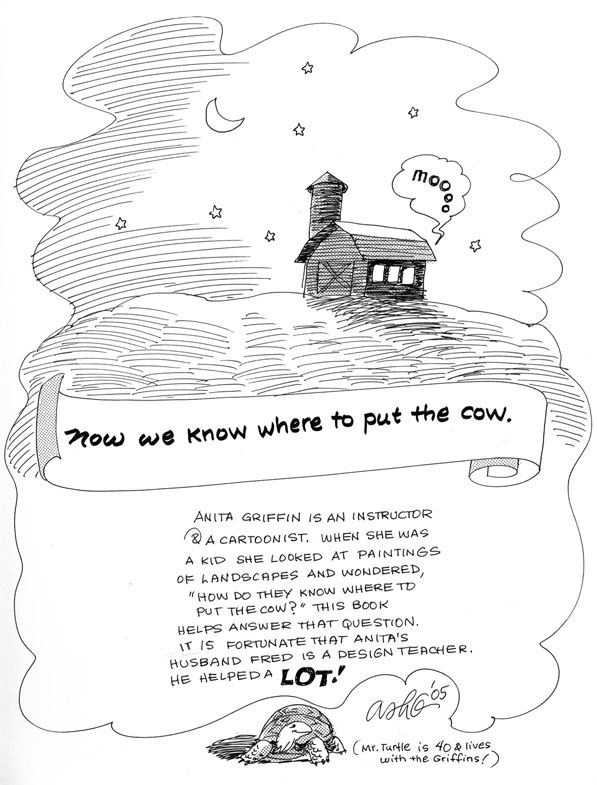 moo
o
o
Now we know where to put the cow.
ANITA GRIFFIN IS AN INSTRUCTOR
& A CARTOONIST. WHEN SHE WAS
A KID SHE LOOKED AT PAINTINGS
OF LANDSCAPES AND WONDERED,
"HOW DO THEY KNOW WHERE TO
PUT THE COW?" THIS BOOK
HELPS ANSWER THAT QUESTION.
IT IS FORTUNATE THAT ANITA'S
HUSBAND FRED IS A DESIGN TEACHER.
HE HELPED A LOT!
'05
(Mr. Turtle is 40 & lives
with the Griffins!)